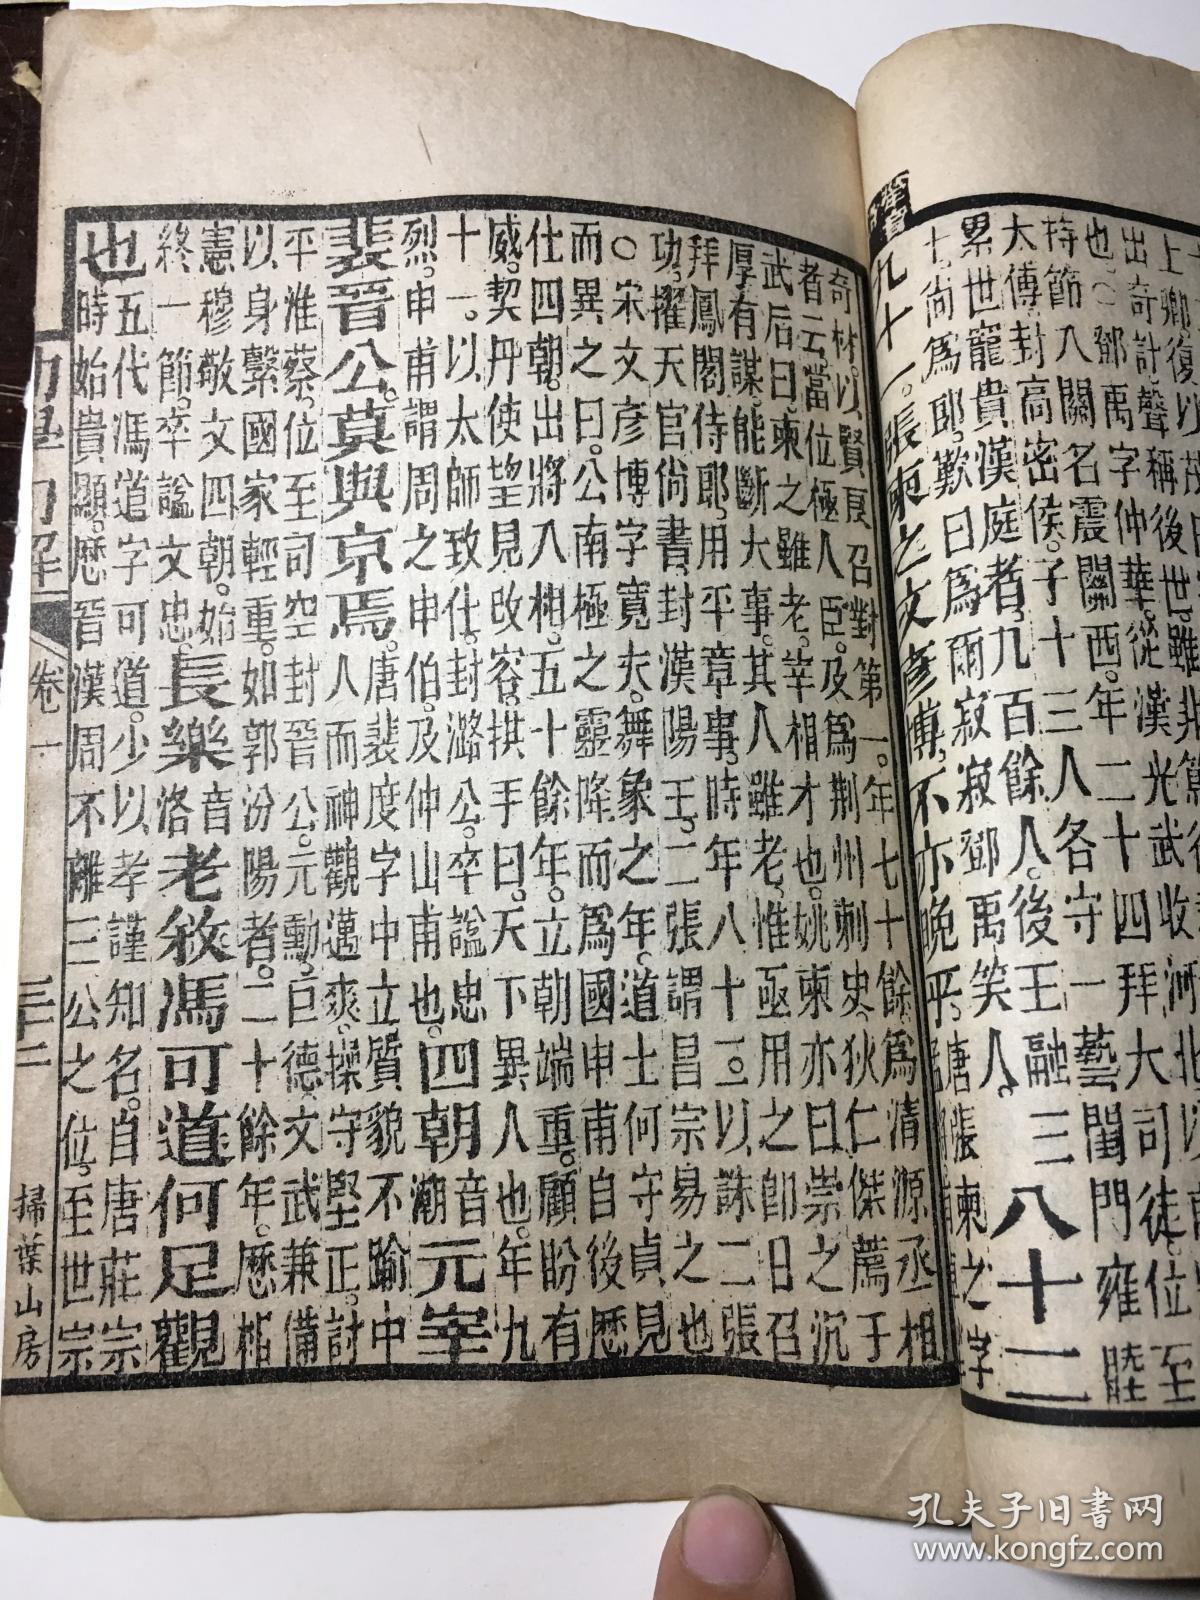 出奇計聲稱後世雖非篤
也○鄧禹字仲華從漢光武收河北以
持節入關名震關西年二十四拜大司徒位至
太傅封高密侯子十三人各守一藝閨門雍睦
累世寵貴漢庭者九百餘人後王融三
七尙爲郎歎曰爲爾寂寂鄧禹笑人八十二
九十一張柬之文彥博不亦晚乎唐張柬之字
奇材以賢良召對第一年七十餘爲清源丞相
者云當位極人臣及爲荆州刺史狄仁傑薦于
武后曰柬之雖老宰相才也姚柬亦曰崇之沉
厚有謀能斷大事其人雖老惟亟用之卽日召
拜鳳閣侍郎用平章事時年八十一以誅二張
功擢天官尙書封漢陽王二張謂昌宗易之也
○宋文彥博字寬夫舞象之年道士何守貞見
而異之曰公南極之靈降而爲國申甫自後歷
仕四朝出將入相五十餘年立朝端重顧盼有
威契丹使望見改容拱手曰天下異人也年九
十一以太師致仕封潞公卒諡忠
烈申甫謂周之申伯及仲山甫也四朝音潮元宰
裴晉公莫與京焉唐裴度字中立質貌不踰中
人而神觀邁爽操守堅正討
平淮蔡位至司空封晉公元勳巨德文武兼備
以身繫國家輕重如郭汾陽者二十餘年歷相
憲穆敬文四朝始
終一節卒諡文忠長樂音洛老敘馮可道何足觀
也五代馮道字可道少以孝謹知名自唐莊宗
時始貴顯歷晉漢周不離三公之位至世宗
卷一
三十二
掃葉山房
孔夫子旧书网
www.kongfz.com